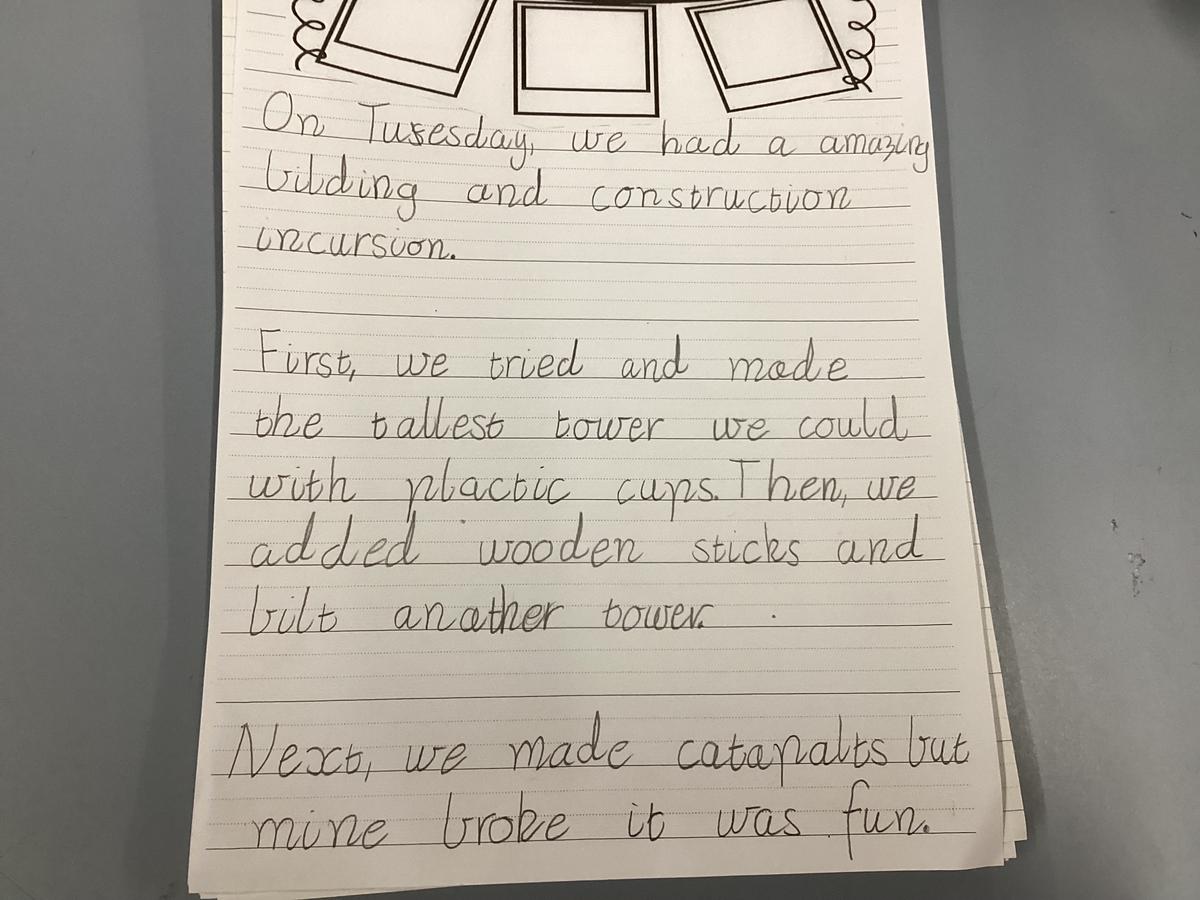 On Tusesday, we had a amazing
bilding and construction
incursion.
First, we tried and made
the tallest tower we could
with plactic cups. Then, we
added wooden sticks and
bilt anather tower.
Next, we made catapalts but
mine broke it was fun.